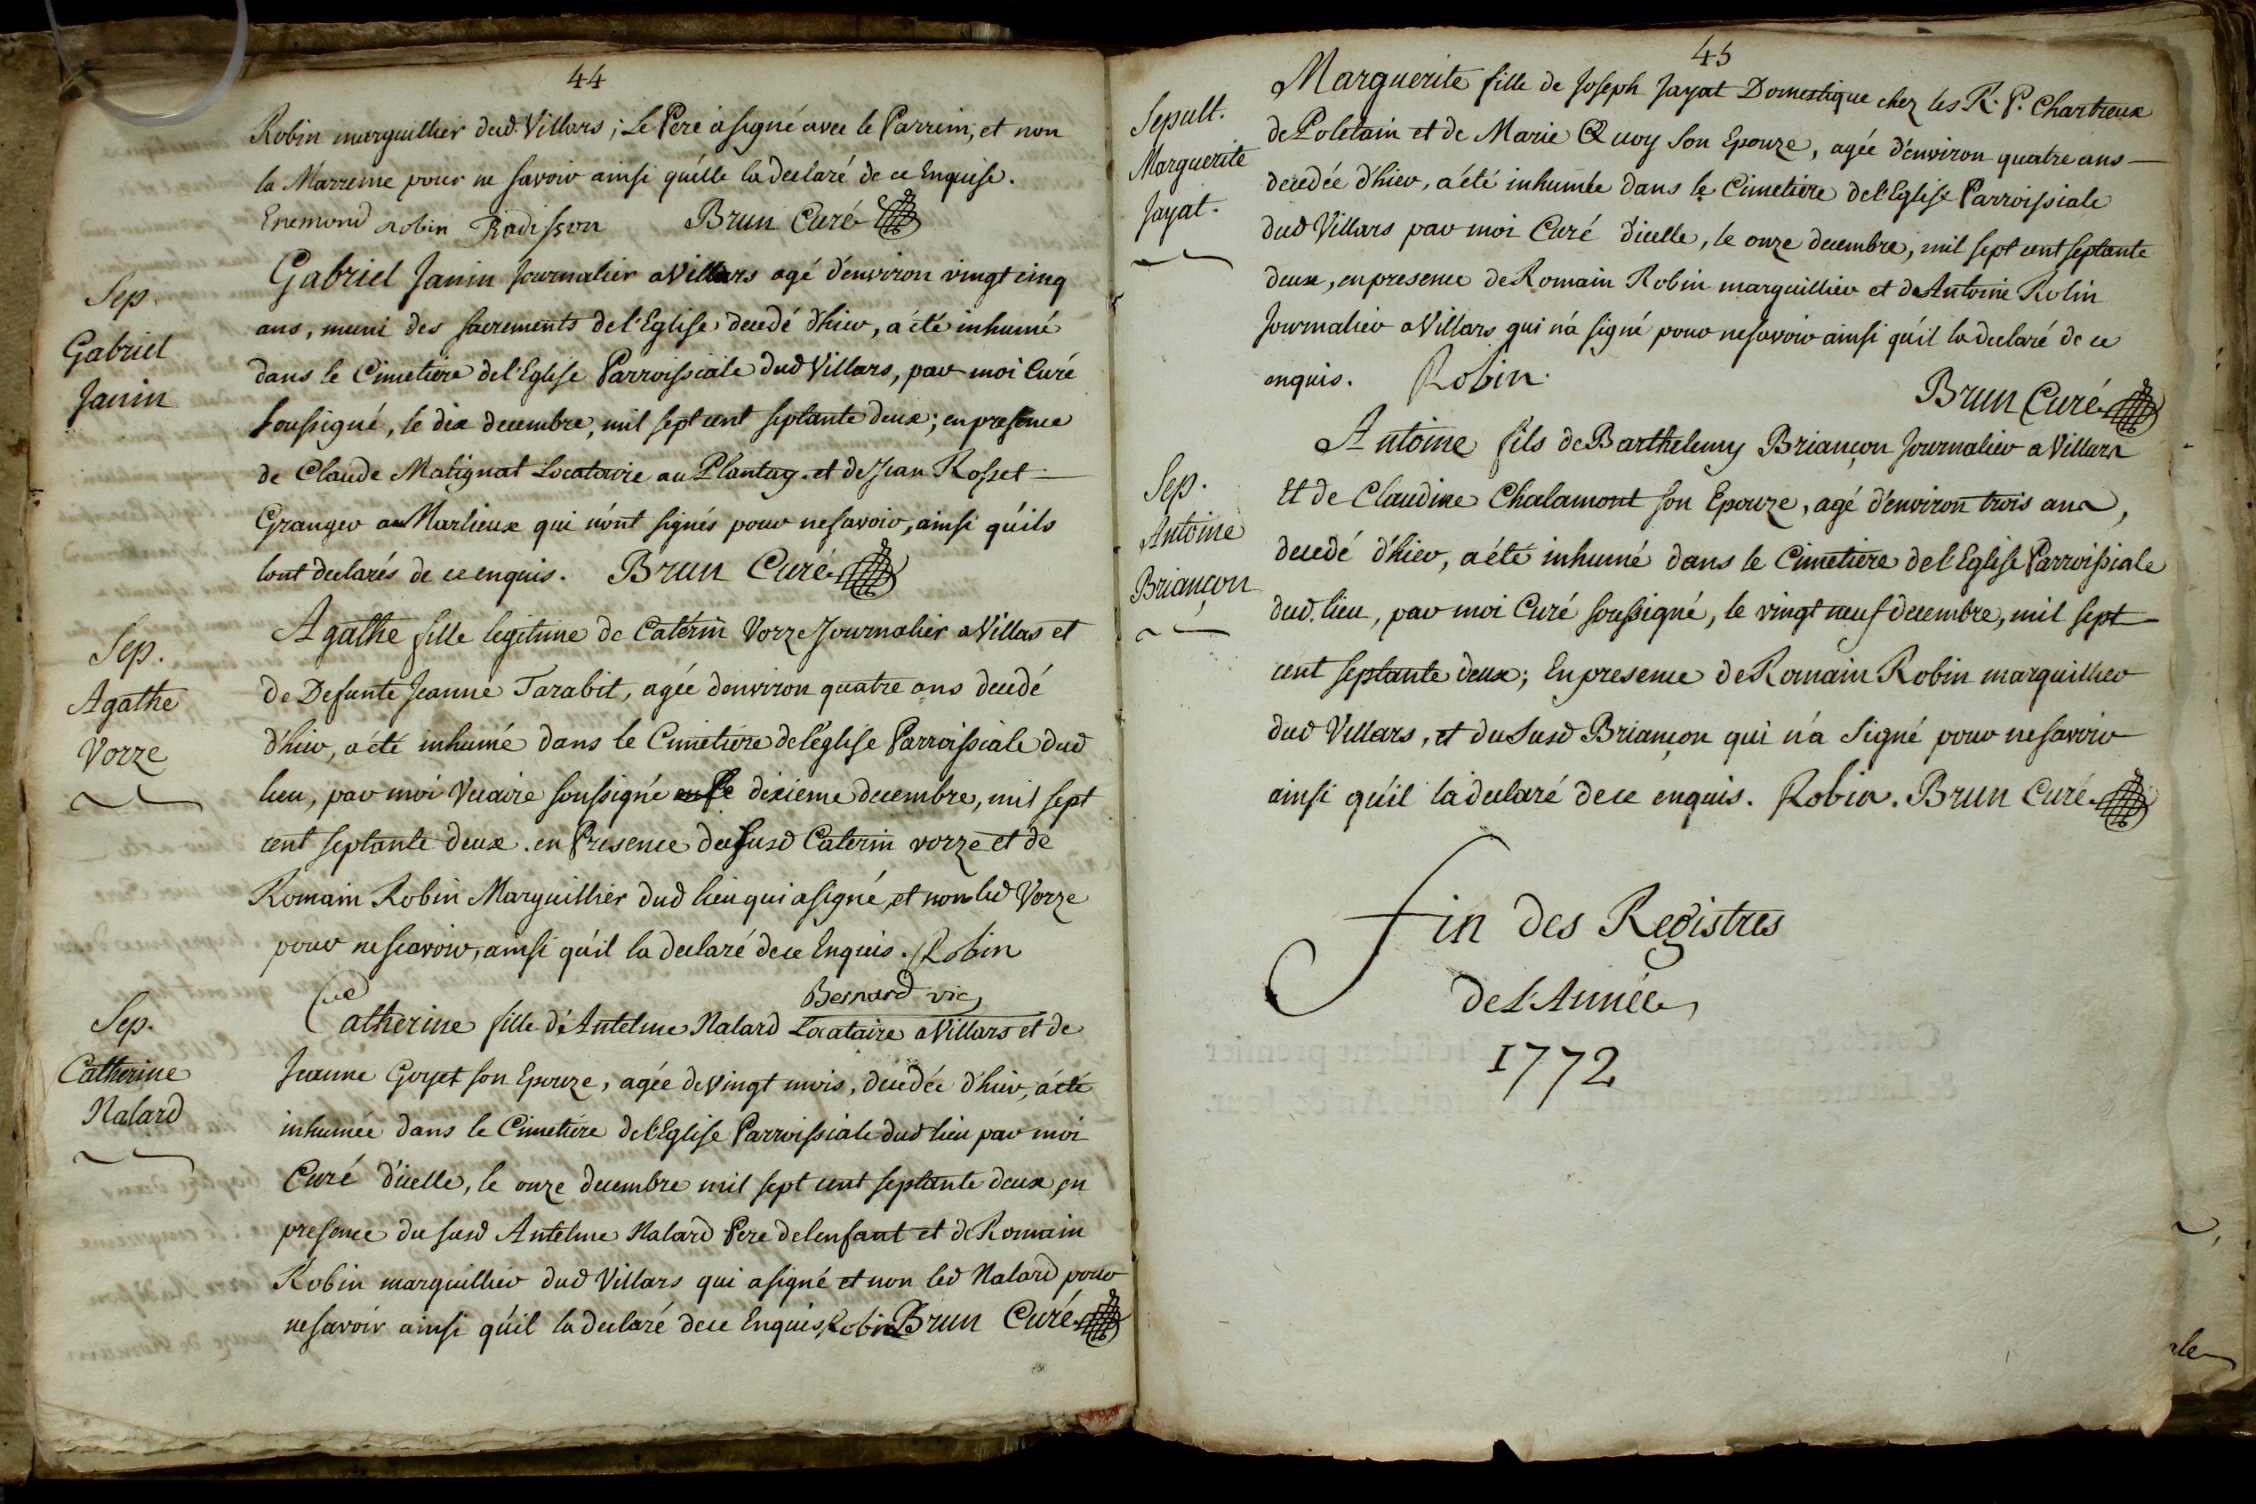 44
Robin marguillier dud. Villars; Le Pere a signé avec le Parrein, et non
la Marreine pour ne savoir ainsi qu'elle la declaré de ce Enquise.
Enemond robin Radisson Brun Curé
Sep.
Gabriel
Janin
Gabriel Janin Journalier a Villars agé d'environ vingt cinq
ans, muni des sacrements de l'Eglise decedé d'hier, a été inhumé
dans le Cimetiere de l'Eglise Parroissiale dud Villars, par moi Curé
soussigné, le dix decembre, mil sept cent septante deux; en presence
de Claude Matignat Locataire au Plantay. et de Jean Rosset
Granger au Marlieux qui n'ont signés pour ne savoir, ainsi qu'ils
l'ont declarés de ce enquis. Brun Curé
Sep.
Agathe
Vorze
Agathe fille legitime de Catérin Vorze Journalier a Villas et
de Defunte Jeanne Tarabit, agée d'environ quatre ans decedé
d'hier, a été inhumé dans le Cimetiere de l'eglise Parroissiale dud
lieu, par moi Vicaire soussigné le dixieme decembre, mil sept
cent septante deux. en Presence du susd Caterin vorze et de
Romain Robin Marguillier dud lieu qui a signé, et non led Vorze
pour ne scavoir, ainsi qu'il la declaré de ce Enquis. Robin
Bernard vic
Sep.
Catherine
Nalard
Catherine fille d'Antelme Nalard Locataire a Villars et de
Jeanne Goyet son Epouze, agée de vingt mois, decedée d'hier, a été
inhumée dans le Cimetiere de l'Eglise Parroissiale dud lieu par moi
Curé d'icelle, le onze decembre mil sept cent septante deux, en
presence du susd Antelme Nalard Pere de l'enfant et de Romain
Robin marguillier dud Villars qui a signé et non led Nalard pour
ne savoir ainsi qu'il la declaré de ce Enquis, Robin Brun Curé
45
Sepult.
Marguerite
Jayat.
Marguerite fille de Joseph Jayat Domestique chez les R. P. Chartreux
de Poletain et de Marie Quoy son Epouze, agée d'environ quatre ans
decedée d'hier, a été inhumée dans le Cimetiere de l'Eglise Parroissiale
dud Villars par moi Curé d'icelle, le onze decembre, mil sept cent septante
deux, en presence de Romain Robin marguillier et de Antoine Rolin
Journalier a Villars qui n'a signé pour ne savoir ainsi qu'il la declaré de ce
enquis. Robin. Brun Curé
Sep.
Antoine
Briançon
Antoine fils de Barthelemy Briançon Journalier a Villars
Et de Claudine Chalamont son Epouze, agé d'environ trois ans,
decedé d'hier, a été inhumé dans le Cimetiere de l'Eglise Parroissiale
dud. lieu, par moi Curé soussigné, le vingt neuf decembre, mil sept
cent septante deux; En presence de Romain Robin marguillier
dud Villars, et du Susd Briançon qui n'a signé pour ne savoir
ainsi qu'il la declaré de ce enquis. Robin. Brun Curé
Fin des Registres
de L'Année
1772